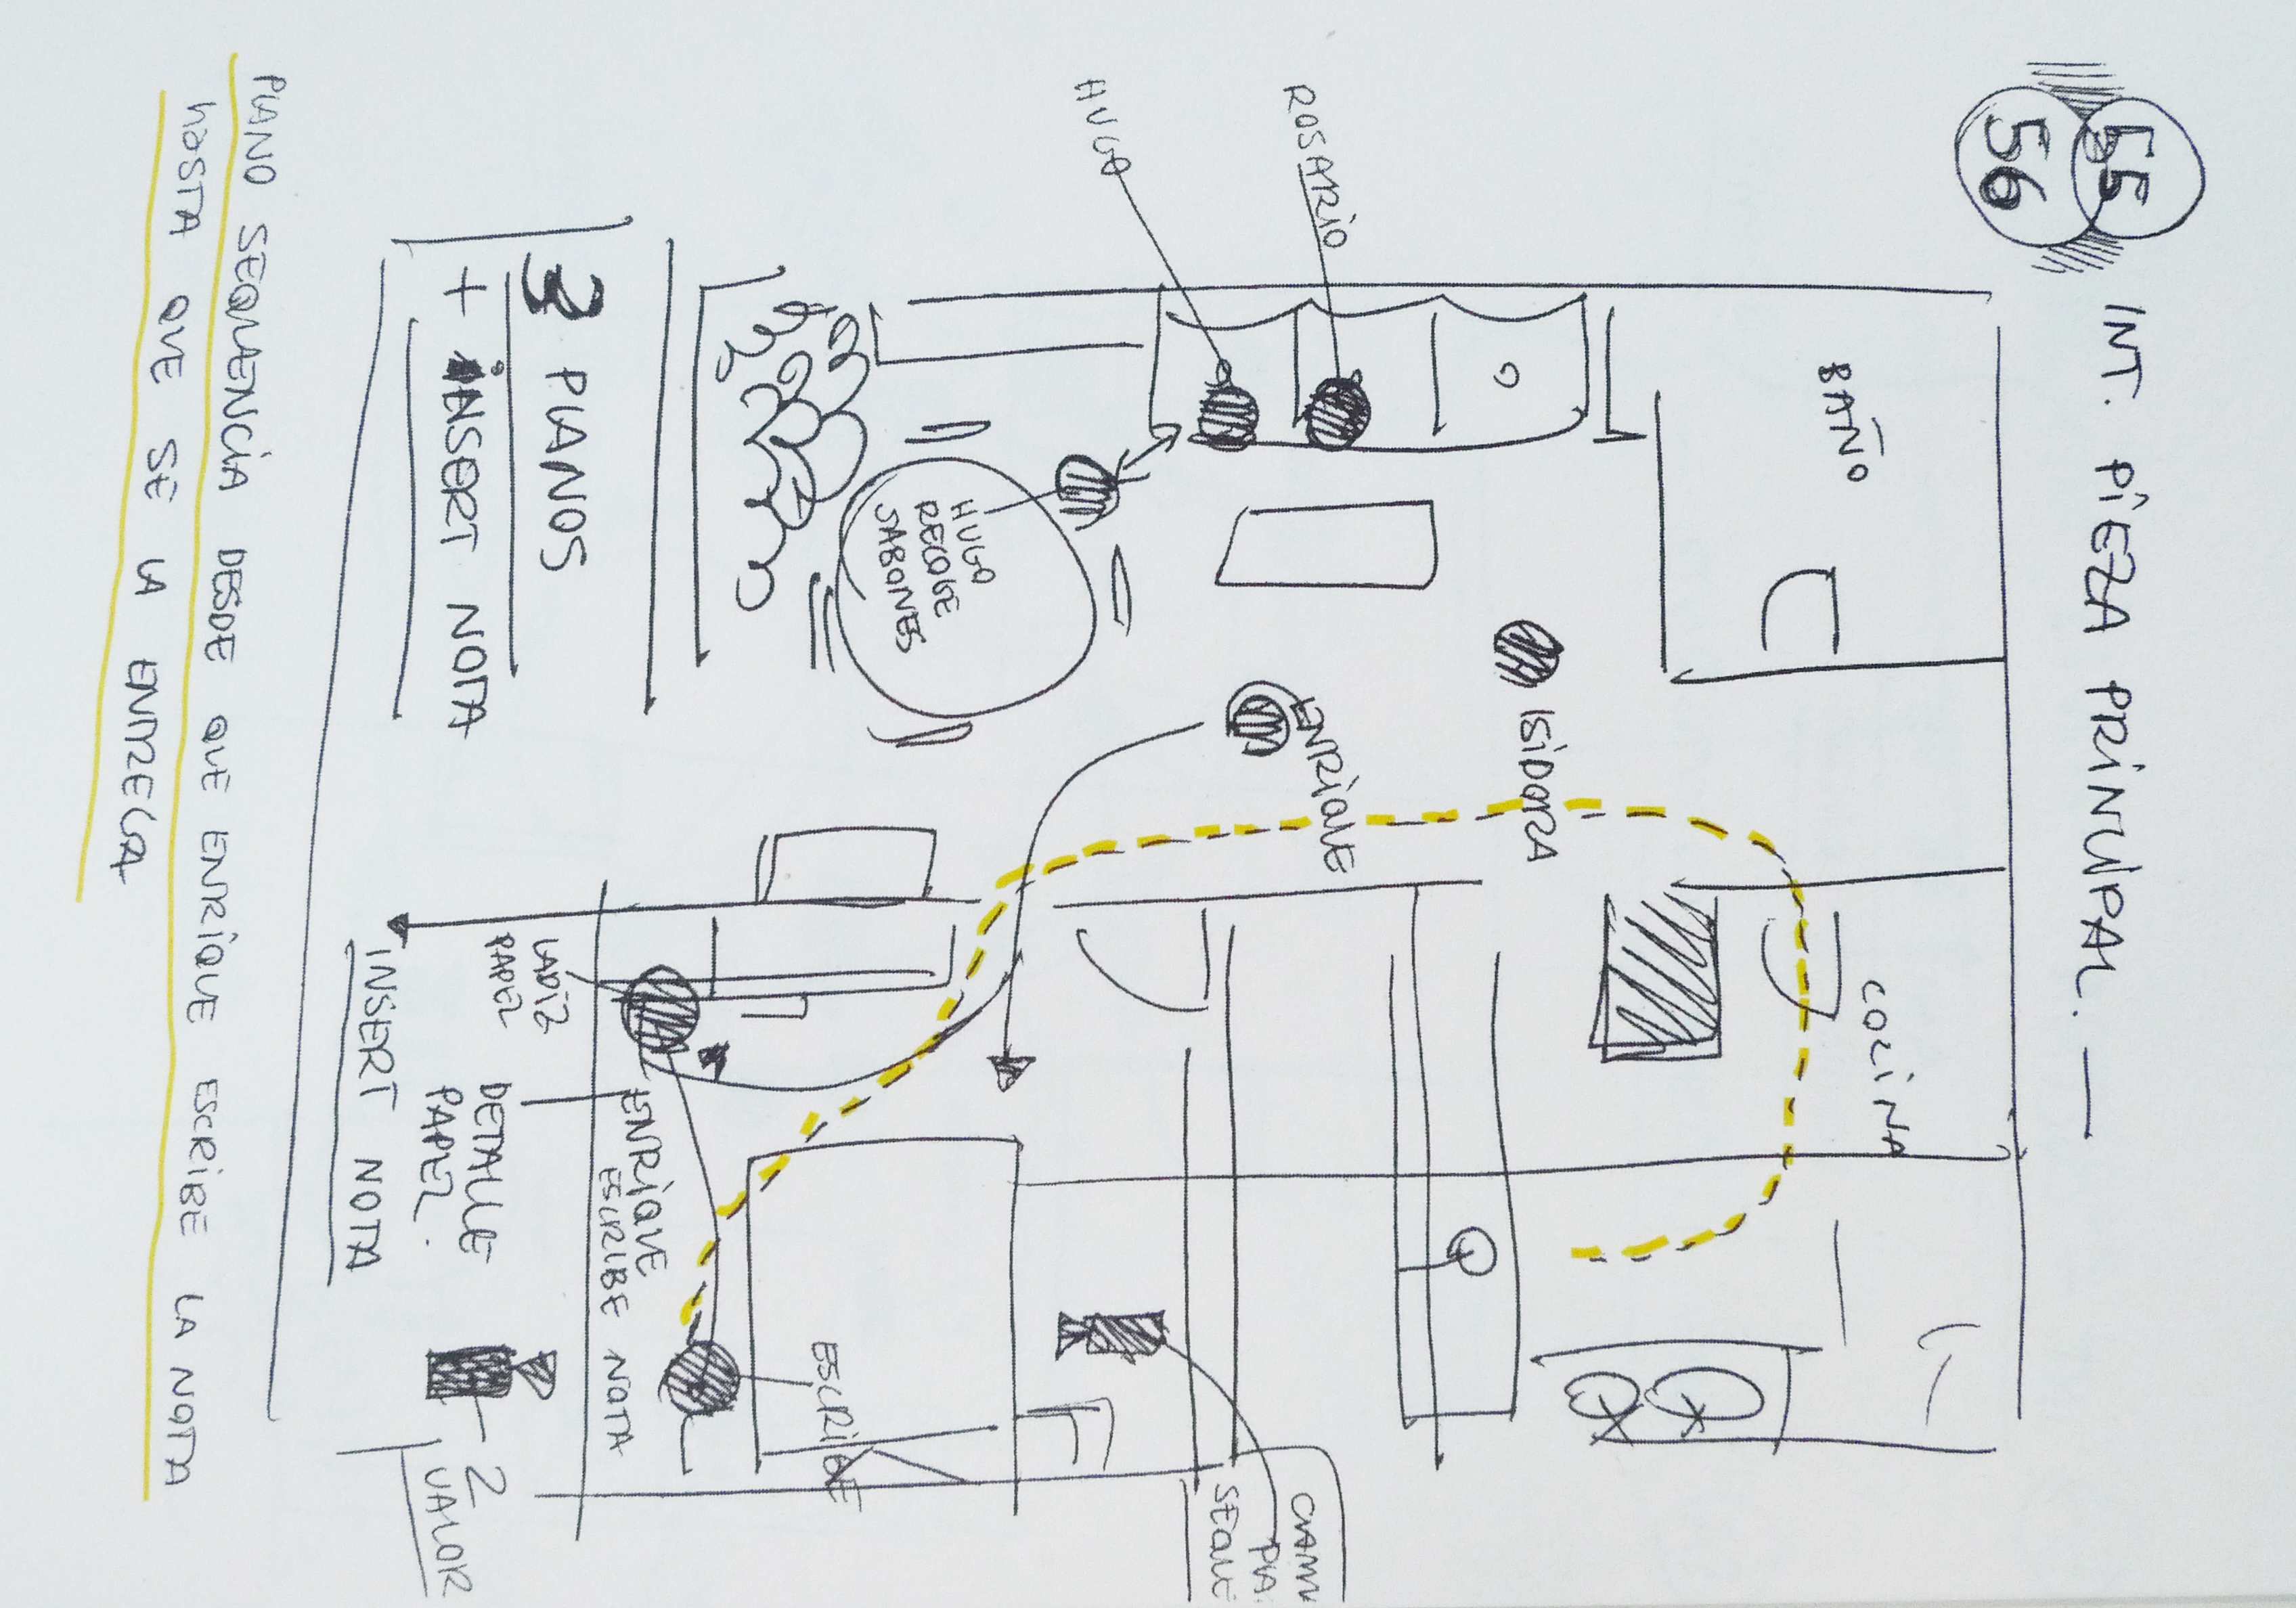 55
56
INT. PIEZA PRINCIPAL. —
BAÑO
ROSARIO
HUGO
HUGO
RECOGE
JABONES
ISIDORA
ENRIQUE
COCINA
3 PLANOS
+ INSERT NOTA
LAPIZ
PAPEL
ENRIQUE
ESCRIBE NOTA
DETALLE
PAPEL.
INSERT NOTA
ESCRIBE
2
VALOR
PLANO SEQUENCIA DESDE QUE ENRIQUE ESCRIBE LA NOTA
hasta QUE SE LA ENTREGA